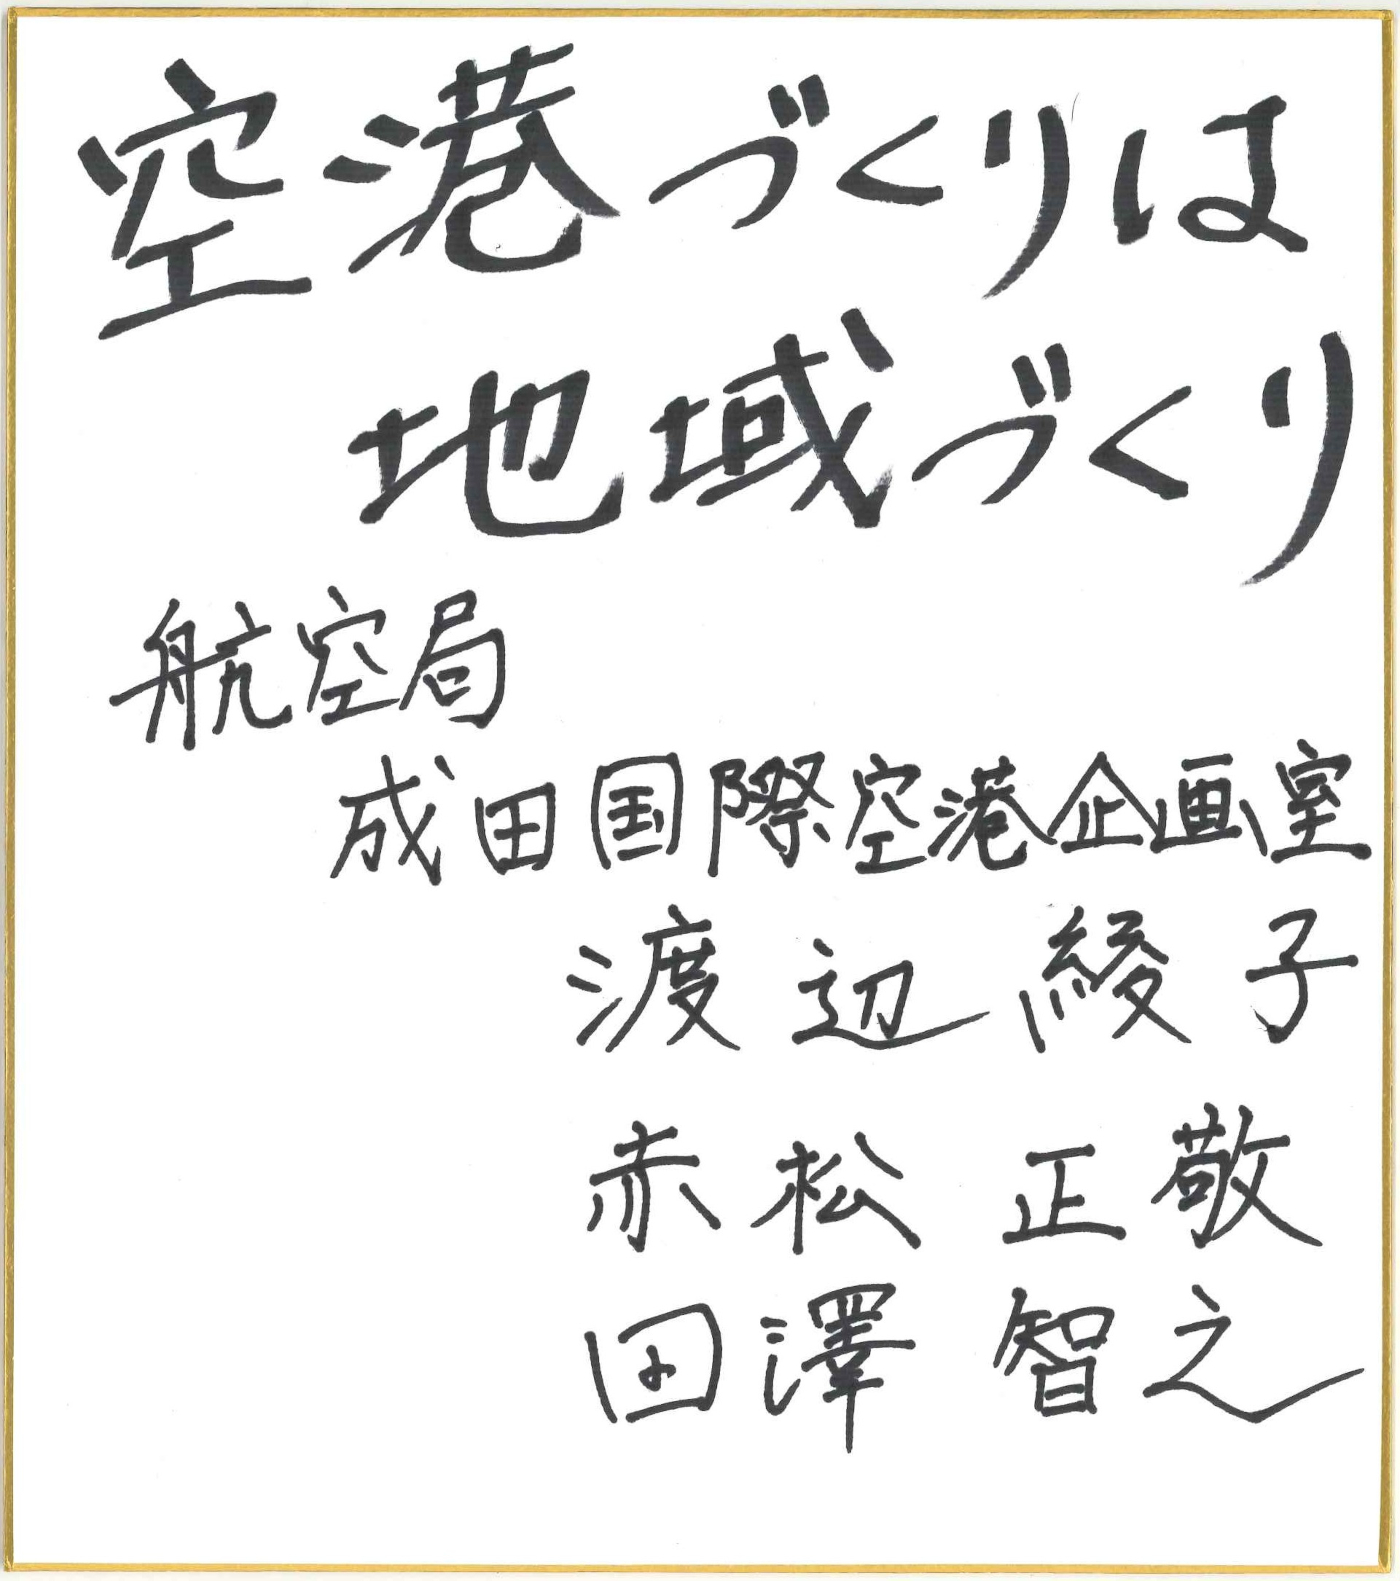 空港づくりは
地域づくり
航空局
成田国際空港企画室
渡辺 綾子
赤松 正敬
田澤 智之